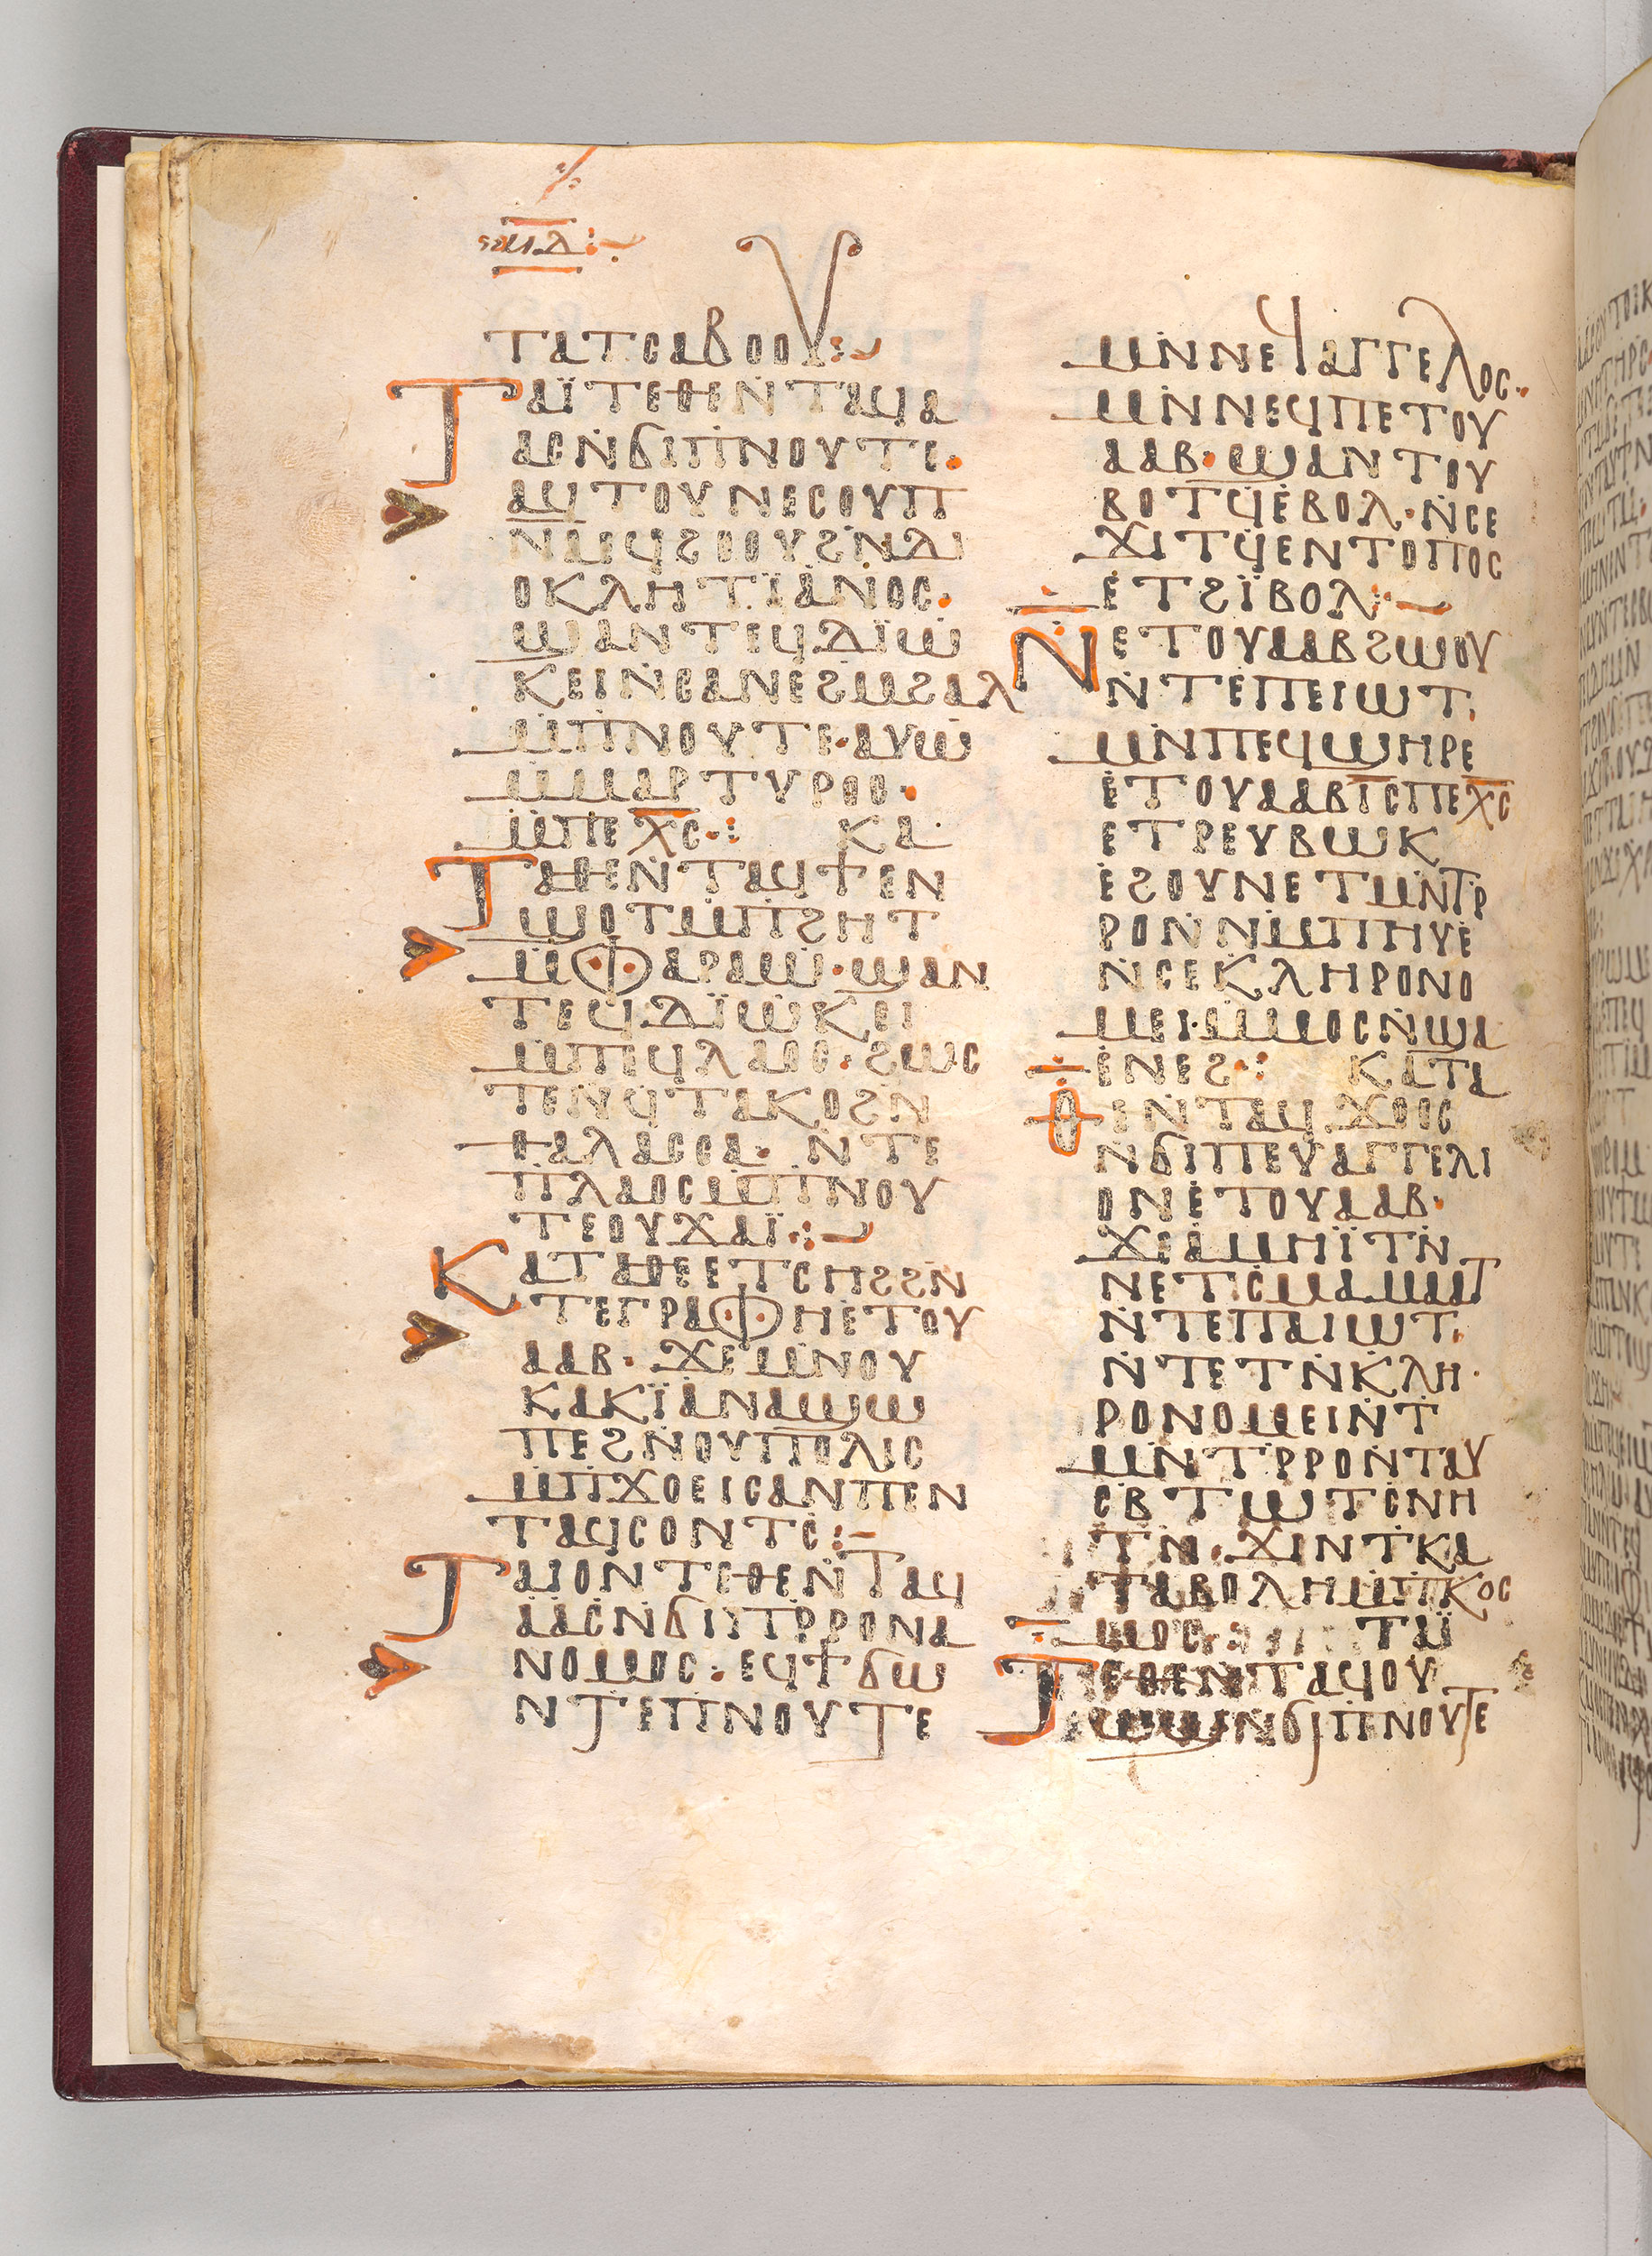 ⲙⲇ
ⲧⲁⲧⲥⲁⲃⲟⲟⲩ:
ⲧⲁⲓ̈ⲧⲉⲑⲉⲛ̇ⲧⲁϥⲁ
ⲁⲥⲛ̇ϭⲓⲡⲛⲟⲩⲧⲉ·
ⲁϥⲧⲟⲩⲛⲉⲥⲟⲩⲡ
ⲛ̅ⲁⲉⲓϥϩⲟⲟⲩϩⲛ̇ⲇⲓ
ⲟⲕⲗⲏⲧⲓ̈ⲁⲛⲟⲥ·
ϣⲁⲛⲧⲉϥⲇⲓ̈ⲱ
ⲕⲉⲓⲛ̇ⲥⲁⲛⲉϩⲙ̇ϩⲁⲗ
ⲙ̇ⲡⲛⲟⲩⲧⲉ·ⲁⲩⲱ
ⲙ̇ⲙⲁⲣⲧⲩⲣⲟⲥ·
ⲙ̇ⲡⲉⲭ̅ⲥ̅·: ⲕⲁ
ⲧⲁⲑⲉⲛ̇ⲧⲁϥϯⲉⲛ
ϣⲟⲧⲙ̇ⲡϩⲏⲧ
ⲙ̇ⲫⲁⲣⲁⲱ·ϣⲁⲛ
ⲧⲉϥⲇⲓ̈ⲱⲕⲉⲓ
ⲙ̇ⲡⲉϥⲗⲁⲟⲥ·ϩⲱⲥ
ⲧⲉⲛϥⲧⲁⲕⲟϩⲛ̇
ⲑⲁⲗⲁⲥⲥⲁ·ⲛ̇ⲧⲉ
ⲡ̇ⲗⲁⲟⲥⲙ̇ⲡⲛⲟⲩ
ⲧⲉⲟⲩϫⲁⲓ̈·:
ⲕⲁⲧⲁⲑⲉⲉⲧⲥⲏϩϩⲛ̇
ⲧⲉⲅⲣⲁⲫⲏⲉⲧⲟⲩ
ⲁⲁⲃ·ϫⲉⲙ̇ⲛⲟⲩ
ⲕⲁⲕⲓ̈ⲁⲛⲁϣⲱ
ⲡⲉϩⲛ̇ⲟⲩⲡⲟⲗⲓⲥ
ⲙ̇ⲡϫⲟⲉⲓⲥⲁⲛⲡⲉⲛ
ⲧⲁϥⲥⲟⲛⲧⲥ̇:
ⲧⲁⲓⲟⲛⲧⲉⲑⲉⲛ̇ⲧⲁϥ
ⲁⲁⲥⲛ̇ϭⲓⲡⲣ̇ⲣⲟⲛⲁ
ⲛⲟⲙⲟⲥ·ⲉϥϯϭⲱ
ⲛⲧⲉⲡⲛⲟⲩⲧⲉ
ⲙⲛ̇ⲛⲉϥⲁⲅⲅⲉⲗⲟⲥ·
ⲙⲛ̇ⲛⲉϥⲡⲉⲧⲟⲩ
ⲁⲁⲃ·ϣⲁⲛⲧⲟⲩ
ⲃⲟⲧϥ̇ⲉⲃⲟⲗ·ⲛ̇ⲥⲉ
ϫⲓⲧϥ̇ⲉⲛⲧⲟⲡⲟⲥ
ⲉⲧϩⲓ̈ⲃⲟⲗ:
ⲛⲉⲧⲟⲩⲁⲁⲃϩⲱⲟⲩ
ⲛ̇ⲧⲉⲡⲉⲓⲱⲧ·
ⲙⲛ̇ⲡⲉϥϣⲏⲣⲉ
ⲉⲧⲟⲩⲁⲁⲃⲓ̅ⲥ̅ⲡⲉⲭ̅ⲥ̅
ⲉⲧⲣⲉⲩⲃⲱⲕ
ⲉϩⲟⲩⲛⲉⲧⲙⲛ̇ⲧⲣ̇
ⲣⲟⲛ̇ⲛⲙ̇ⲡⲏⲩⲉ
ⲛ̇ⲥⲉⲕⲗⲏⲣⲟⲛⲟ
ⲙⲉⲓ·ⲙ̇ⲙⲟⲥⲛ̇ϣⲁ
ⲉⲛⲉϩ·: ⲕⲁⲧⲁ
ⲑⲉⲛ̇ⲧⲁϥϫⲟⲟⲥ
ⲛ̇ϭⲓⲡⲉⲩⲁⲅⲅⲉⲗⲓ
ⲟⲛⲉⲧⲟⲩⲁⲁⲃ·
ϫⲉⲁⲙⲏⲓ̈ⲧⲛ̇
ⲛⲉⲧⲥ̇ⲙⲁⲙⲁⲁⲧ
ⲛ̇ⲧⲉⲡⲁⲓⲱⲧ·
ⲛ̇ⲧⲉⲧⲛ̇ⲕⲗⲏ·
ⲣⲟⲛⲟⲙⲉⲓⲛ̇ⲧ
ⲙⲛ̇ⲧⲣ̇ⲣⲟⲛⲧⲁⲩ
ⲥⲃ̇ⲧⲱⲧⲥ̇ⲛⲏ
ⲧⲛ̇·ϫⲓⲛⲧ̇ⲕⲁ
ⲧⲁⲃⲟⲗⲏⲙ̇ⲡⲕⲟⲥ
ⲙⲟⲥ: ⲧⲁⲓ̈
ⲧⲉⲑⲉⲛ̇ⲧⲁϥⲟⲩ
ⲉϣⲱⲥ̇ⲛ̇ϭⲓⲡⲛⲟⲩⲧⲉ